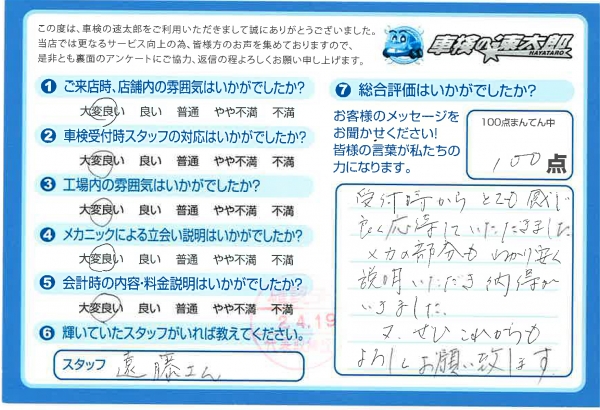 この度は、車検の速太郎をご利用いただきまして誠にありがとうございました。
当店では更なるサービス向上の為、皆様方のお声を集めておりますので、
是非とも裏面のアンケートにご協力、返信の程よろしくお願い申し上げます。
車検の速太郎
HAYATARO
1 ご来店時、店舗内の雰囲気はいかがでしたか?
大変良い 良い 普通 やや不満 不満
2 車検受付時スタッフの対応はいかがでしたか?
大変良い 良い 普通 やや不満 不満
3 工場内の雰囲気はいかがでしたか?
大変良い 良い 普通 やや不満 不満
4 メカニックによる立会い説明はいかがでしたか?
大変良い 良い 普通 やや不満 不満
5 会計時の内容・料金説明はいかがでしたか?
大変良い 良い 普通 やや不満 不満
6 輝いていたスタッフがいれば教えてください。
スタッフ 遠藤さん
2.4.19
7 総合評価はいかがでしたか?
お客様のメッセージを
お聞かせください!
皆様の言葉が私たちの
力になります。
100点まんてん中
100 点
受付時から とても 感じ
良く応待していただきました
メカの部分も わかり安く
説明いただき 納得が
いきました.
又、ぜひ これからも
よろしくお願い致します